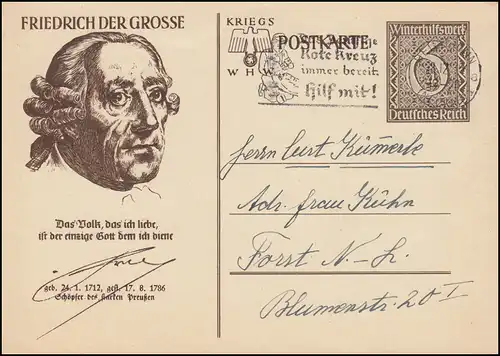 FRIEDRICH DER GROSSE
Das Volk, das ich liebe,
ist der einzige Gott dem ich diene
geb. 24. 1. 1712, gest. 17. 8. 1786
Schöpfer des starken Preußen
KRIEGS
WHW
POSTKARTE
Rote Kreuz
immer bereit
Hilf mit!
Winterhilfswerk
6
Deutsches Reich
Herrn Curt Kümmerle
Adr. frau Kühn
Forst N-L.
Blumenstr. 20 I